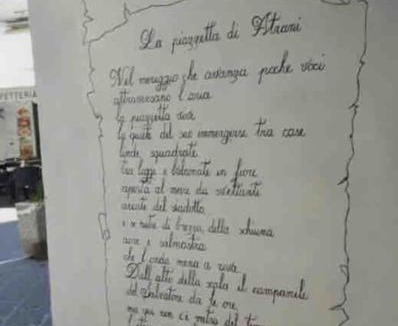 La piazzetta di Atrani
Nel meriggio che avanza poche voci
attraversano l'aria
la piazzetta vive
la quiete del suo immergersi tra case
linde, squadrate
tra logge e balconate in fiore
aperta al mare da svettanti
arcate del viadotto
e si nutre di brezza, della schiuma
acre e salmastra
che l'onda mena a riva
Dall'alto della scala il campanile
del Salvatore da le ore
ma qui non c'è del
PETTERIA